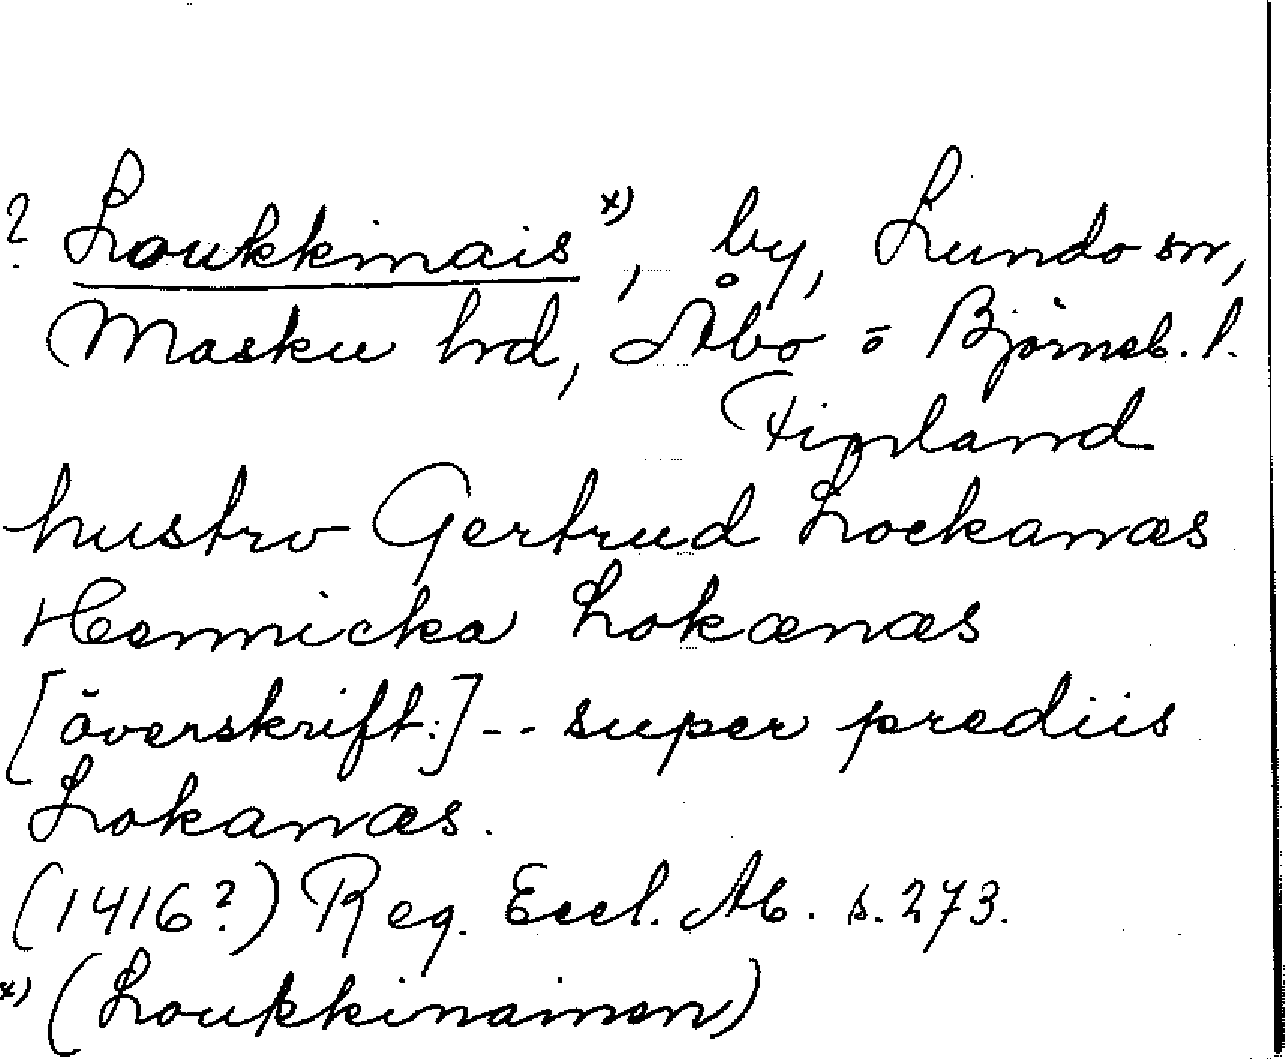 ? Loukkinais *), by, Lundo sn,
Masku hrd, Åbo o Björneb. l.
Finland
hustro Gertrud Lockanæs
Hennicka Lokænæs
[överskrift:] -- super prediis
Lokanæs.
(1416?) Reg. Eccl. Ab. s. 273.
*) (Loukkinainen)